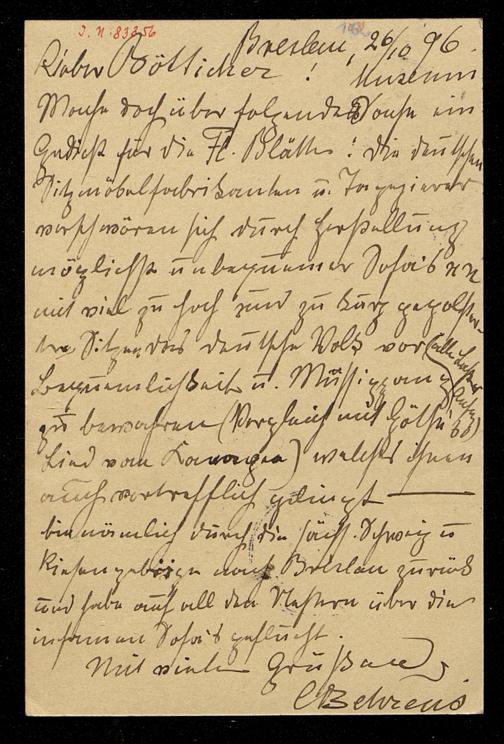 J.N. 83356
Breslau, 26/10 96.
Lieber Bötticher! Museum
Mache doch über folgendes Sache ein
Gedicht für die Fl. Blätter: Die deutschen
Sitzmöbelfabrikanten u. Tapezierer
verschwören sich durch Herstellung
möglichst unbequemer Sofa's
mit viel zu hoch und zu kurz gepolster-
ten Sitzen das deutsche Volk vor
Bequemlichkeit u. Müssiggang (aller Laster Anfang)
zu bewahren (Vergleich mit Göthe's
Lied vom) welches ihnen
auch vortrefflich gelingt —
bin nämlich durch die sächs. Schweiz u
Riesengebirge nach Breslau zurück
und habe auf all den Nestern über die
infamen Sofa's geflucht.
Mit vielen Grüßen
CBehrens